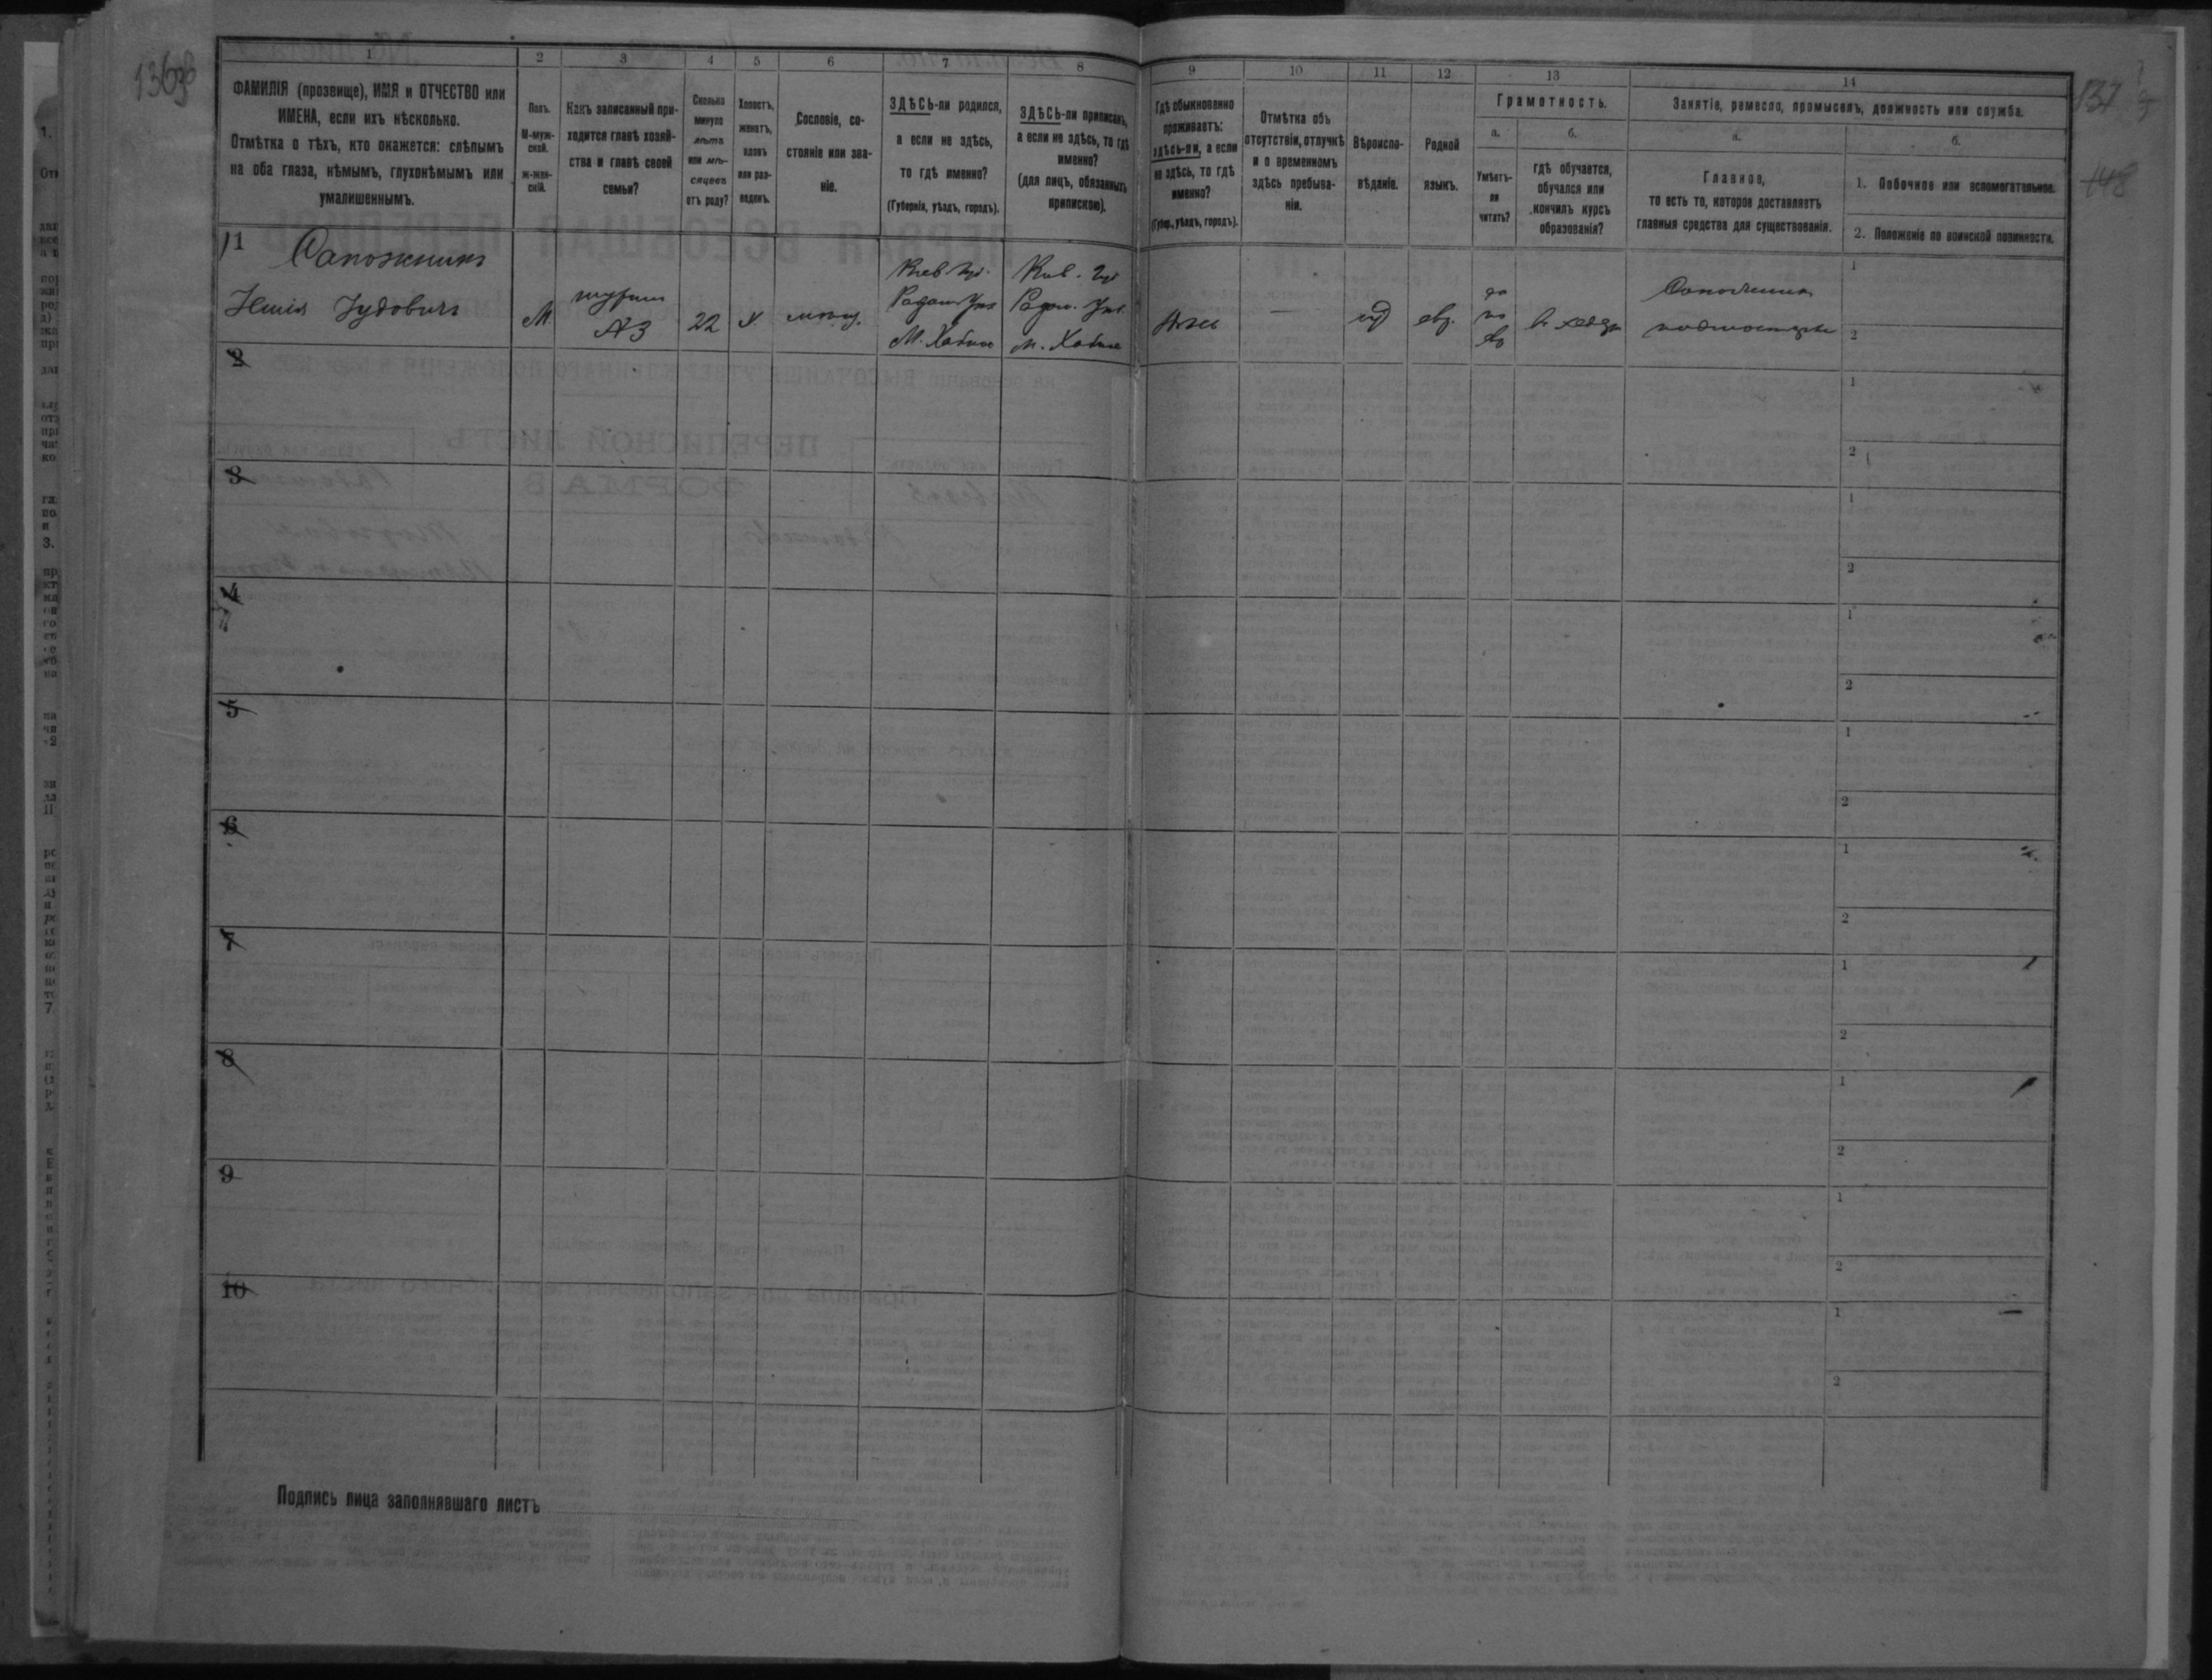 1
2
3
4
5
6
7
8
ФАМИЛІЯ (прозвище), ИМЯ и ОТЧЕСТВО или
ИМЕНА, если ихъ нѣсколько.
Отмѣтка о тѣхъ, кто окажется: слѣпымъ
на оба глаза, нѣмымъ, глухонѣмымъ или
умалишеннымъ.
Полъ.
М-муж-
ской.
ж-жен-
скій.
Какъ записанный при-
ходится главѣ хозяй-
ства и главѣ своей
семьи?
Сколько
минуло
лѣтъ
или мѣ-
сяцевъ
отъ роду?
Холостъ,
женатъ,
вдовъ
или раз-
веденъ.
Сословіе, со-
стояніе или зва-
ніе.
ЗДѢСЬ-ли родился,
а если не здѣсь,
то гдѣ именно?
(Губернія, уѣздъ, городъ).
ЗДѢСЬ-ли приписанъ,
а если не здѣсь, то гдѣ
именно?
(для лицъ, обязанныхъ
припискою).
1
Сапожникъ
Іудовичъ
М.
шуринъ
№3
22
Х.
мѣщ.
Кіев. губ.
М. Хабное
Кіев. губ.
м. Хабное
2
3
4
5
6
7
8
9
10
Подпись лица заполнявшаго листъ
9
10
11
12
13
14
Гдѣ обыкновенно
проживаетъ:
здѣсь-ли, а если
не здѣсь, то гдѣ
именно?
(Губер., уѣздъ, городъ).
Отмѣтка объ
отсутствіи, отлучкѣ
и о временномъ
здѣсь пребыва-
ніи.
Вѣроиспо-
вѣданіе.
Родной
языкъ.
Грамотность.
а.
б.
Умѣетъ-
ли
читать?
гдѣ обучается,
обучался или
кончилъ курсъ
образованія?
Занятіе, ремесло, промыселъ, должность или служба.
а.
б.
Главное,
то есть то, которое доставляетъ
главныя средства для существованія.
1. Побочное или вспомогательное.
2. Положеніе по воинской повинности.
137
148
—
іуд
евр.
да
по
Сапожникъ
подмастерье
1
2
1
2
1
2
1
2
1
2
1
2
1
2
1
2
1
2
1
2